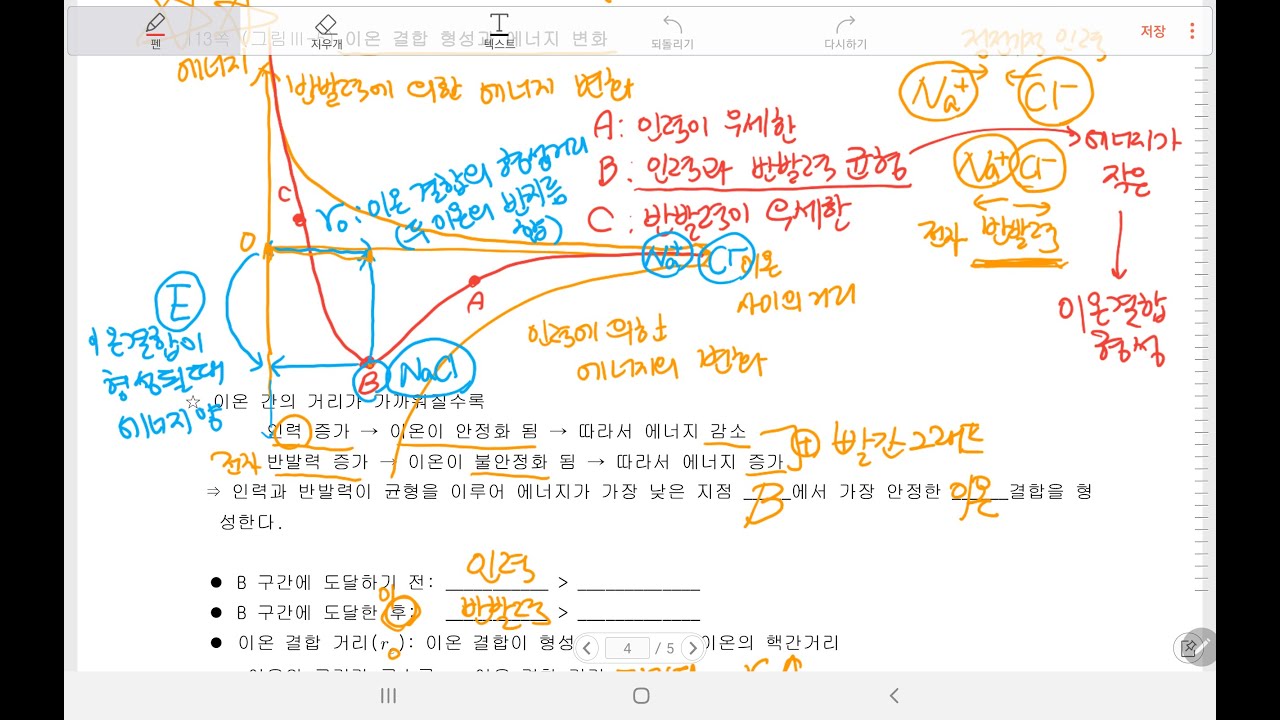 펜
지우개
텍스트
되돌리기
다시하기
저장
113쪽 (그림Ⅲ 이온 결합 형성과 에너지 변화
정전기적 인력
에너지
반발력에 의한 에너지 변화
Na+ Cl-
A: 인력이 우세한
B: 인력과 반발력 균형
C: 반발력이 우세한
에너지가
작은
이온결합
형성
Na+ Cl-
전자 반발력
r₀: 이온 결합의 형성거리
(두 이온의 반지름
합)
C
0
Na+ Cl-
이온
사이의 거리
A
E
이온결합이
형성될때
에너지 양
인력에 의한
에너지의 변화
B NaCl
☆ 이온 간의 거리가 가까워질수록
인력 증가 → 이온이 안정화 됨 → 따라서 에너지 감소
전자 반발력 증가 → 이온이 불안정화 됨 → 따라서 에너지 증가
⊕ 빨간그래프
⇒ 인력과 반발력이 균형을 이루어 에너지가 가장 낮은 지점 B에서 가장 안정한 이온결합을 형
성한다.
● B 구간에 도달하기 전: 인력 >
● B 구간에 도달한 이후: 반발력 >
● 이온 결합 거리(r₀): 이온 결합이 형성 이온의 핵간거리
4 / 5